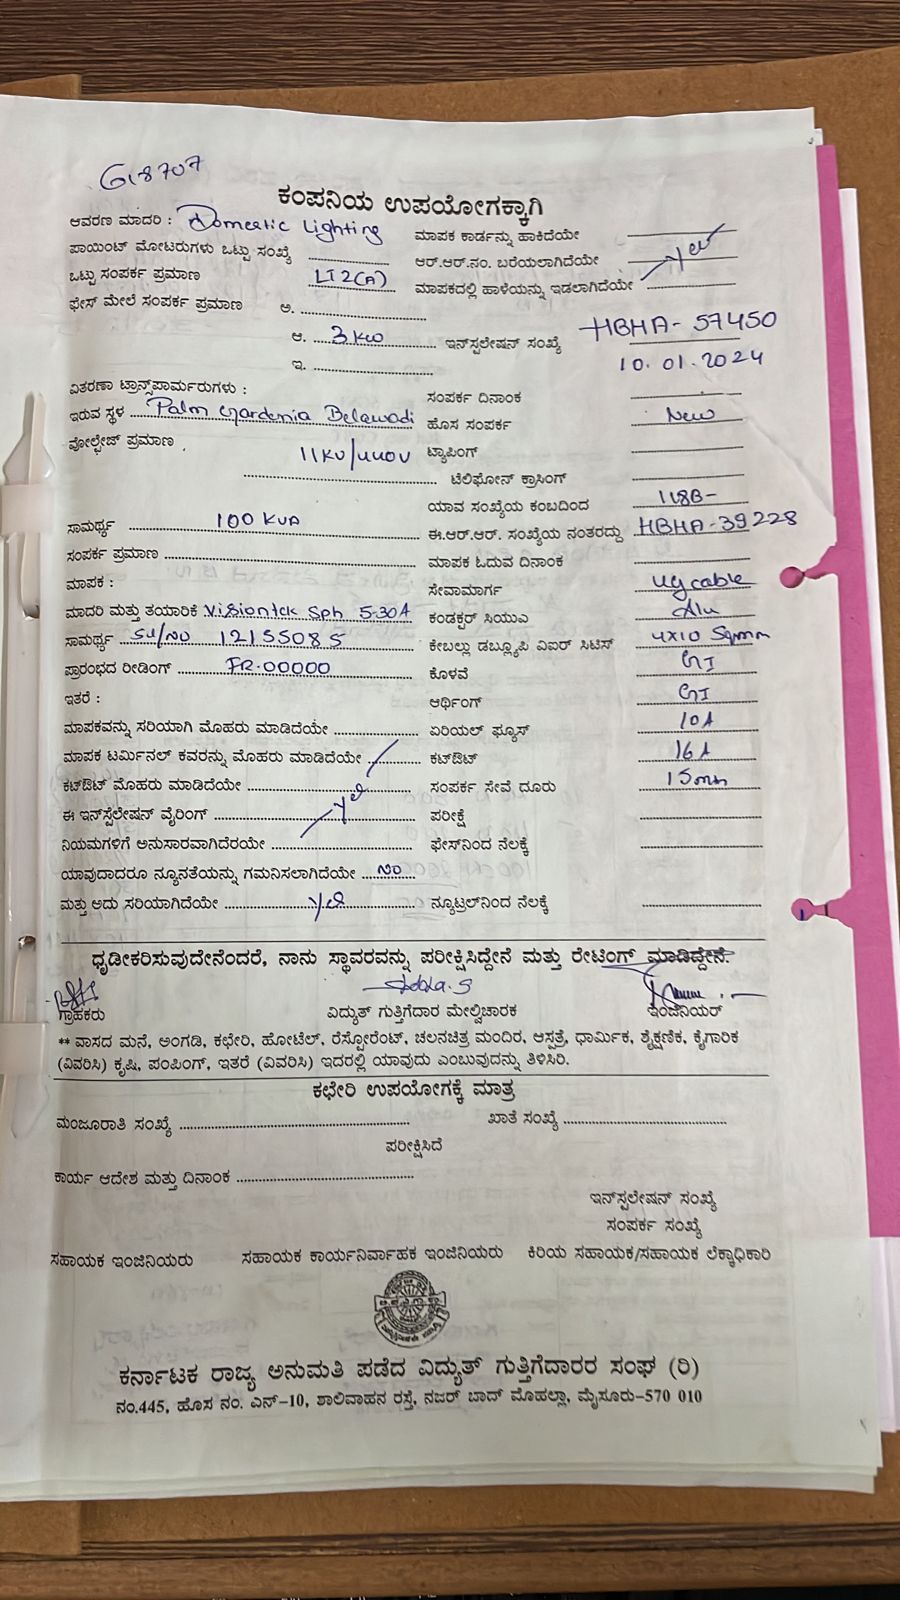 G18707
ಕಂಪನಿಯ ಉಪಯೋಗಕ್ಕಾಗಿ
ಆವರಣ ಮಾದರಿ : Domestic Lighting ಮಾಪಕ ಕಾರ್ಡನ್ನು ಹಾಕಿದೆಯೇ
ಪಾಯಿಂಟ್ ಮೋಟರುಗಳು ಒಟ್ಟು ಸಂಖ್ಯೆ ಆರ್.ಆರ್.ನಂ. ಬರೆಯಲಾಗಿದೆಯೇ
ಒಟ್ಟು ಸಂಪರ್ಕ ಪ್ರಮಾಣ LT2(A) ಮಾಪಕದಲ್ಲಿ ಹಾಳೆಯನ್ನು ಇಡಲಾಗಿದೆಯೇ Yes
ಫೇಸ್ ಮೇಲೆ ಸಂಪರ್ಕ ಪ್ರಮಾಣ ಅ.
ಆ. 3 KW ಇನ್‌ಸ್ಪಲೇಷನ್ ಸಂಖ್ಯೆ HBHA-57450
ಇ. 10.01.2024
ವಿತರಣಾ ಟ್ರಾನ್ಸ್‌ಪಾರ್ಮರುಗಳು : ಸಂಪರ್ಕ ದಿನಾಂಕ
ಇರುವ ಸ್ಥಳ Palm Gardenia Belawadi ಹೊಸ ಸಂಪರ್ಕ New
ವೋಲ್ಟೇಜ್ ಪ್ರಮಾಣ 11KV/440V ಟ್ಯಾಪಿಂಗ್
ಟೆಲಿಫೋನ್ ಕ್ರಾಸಿಂಗ್
ಯಾವ ಸಂಖ್ಯೆಯ ಕಂಬದಿಂದ 118B-
ಸಾಮರ್ಥ್ಯ 100 KVA ಈ.ಆರ್.ಆರ್. ಸಂಖ್ಯೆಯ ನಂತರದ್ದು HBHA-39228
ಸಂಪರ್ಕ ಪ್ರಮಾಣ ಮಾಪಕ ಓದುವ ದಿನಾಂಕ
ಮಾಪಕ : ಸೇವಾಮಾರ್ಗ UG cable
ಮಾದರಿ ಮತ್ತು ತಯಾರಿಕೆ Visiontek Sph 5-30A ಕಂಡಕ್ಟರ್ ಸಿಯುಎ Alu
ಸಾಮರ್ಥ್ಯ Sl/No 12155085 ಕೇಬಲ್ಲು ಡಬ್ಲ್ಯೂಪಿ ವಿಐರ್ ಸಿಟಿಸ್ 4x10 Sqmm
ಪ್ರಾರಂಭದ ರೀಡಿಂಗ್ FR.00000 ಕೊಳವೆ GI
ಇತರೆ : ಆರ್ಥಿಂಗ್ GI
ಮಾಪಕವನ್ನು ಸರಿಯಾಗಿ ಮೊಹರು ಮಾಡಿದೆಯೇ ಏರಿಯಲ್ ಫ್ಯೂಸ್ 10A
ಮಾಪಕ ಟರ್ಮಿನಲ್ ಕವರನ್ನು ಮೊಹರು ಮಾಡಿದೆಯೇ ಕಟ್‌ಔಟ್ 16A
ಕಟ್‌ಔಟ್ ಮೊಹರು ಮಾಡಿದೆಯೇ ಸಂಪರ್ಕ ಸೇವೆ ದೂರು 15mm
ಈ ಇನ್‌ಸ್ಪೆಲೇಷನ್ ವೈರಿಂಗ್ Yes ಪರೀಕ್ಷೆ
ನಿಯಮಗಳಿಗೆ ಅನುಸಾರವಾಗಿದೆರಯೇ ಫೇಸ್‌ನಿಂದ ನೆಲಕ್ಕೆ
ಯಾವುದಾದರೂ ನ್ಯೂನತೆಯನ್ನು ಗಮನಿಸಲಾಗಿದೆಯೇ No
ಮತ್ತು ಅದು ಸರಿಯಾಗಿದೆಯೇ Yes ನ್ಯೂಟ್ರಲ್‌ನಿಂದ ನೆಲಕ್ಕೆ
ಧೃಡೀಕರಿಸುವುದೇನೆಂದರೆ, ನಾನು ಸ್ಥಾವರವನ್ನು ಪರೀಕ್ಷಿಸಿದ್ದೇನೆ ಮತ್ತು ರೇಟಿಂಗ್ ಮಾಡಿದ್ದೇನೆ.
ಗ್ರಾಹಕರು ವಿದ್ಯುತ್ ಗುತ್ತಿಗೆದಾರ ಮೇಲ್ವಿಚಾರಕ ಇಂಜಿನಿಯರ್
** ವಾಸದ ಮನೆ, ಅಂಗಡಿ, ಕಛೇರಿ, ಹೋಟೆಲ್, ರೆಸ್ಟೋರೆಂಟ್, ಚಲನಚಿತ್ರ ಮಂದಿರ, ಆಸ್ಪತ್ರೆ, ಧಾರ್ಮಿಕ, ಶೈಕ್ಷಣಿಕ, ಕೈಗಾರಿಕ
(ವಿವರಿಸಿ) ಕೃಷಿ, ಪಂಪಿಂಗ್, ಇತರೆ (ವಿವರಿಸಿ) ಇದರಲ್ಲಿ ಯಾವುದು ಎಂಬುವುದನ್ನು ತಿಳಿಸಿರಿ.
ಕಛೇರಿ ಉಪಯೋಗಕ್ಕೆ ಮಾತ್ರ
ಮಂಜೂರಾತಿ ಸಂಖ್ಯೆ ಖಾತೆ ಸಂಖ್ಯೆ
ಪರೀಕ್ಷಿಸಿದೆ
ಕಾರ್ಯ ಆದೇಶ ಮತ್ತು ದಿನಾಂಕ
ಇನ್‌ಸ್ಪಲೇಷನ್ ಸಂಖ್ಯೆ
ಸಂಪರ್ಕ ಸಂಖ್ಯೆ
ಸಹಾಯಕ ಇಂಜಿನಿಯರು ಸಹಾಯಕ ಕಾರ್ಯನಿರ್ವಾಹಕ ಇಂಜಿನಿಯರು ಕಿರಿಯ ಸಹಾಯಕ/ಸಹಾಯಕ ಲೆಕ್ಕಾಧಿಕಾರಿ
ಕರ್ನಾಟಕ ರಾಜ್ಯ ಅನುಮತಿ ಪಡೆದ ವಿದ್ಯುತ್ ಗುತ್ತಿಗೆದಾರರ ಸಂಘ (ರಿ)
ನಂ.445, ಹೊಸ ನಂ. ಎನ್-10, ಶಾಲಿವಾಹನ ರಸ್ತೆ, ನಜರ್ ಬಾದ್ ಮೊಹಲ್ಲಾ, ಮೈಸೂರು-570 010